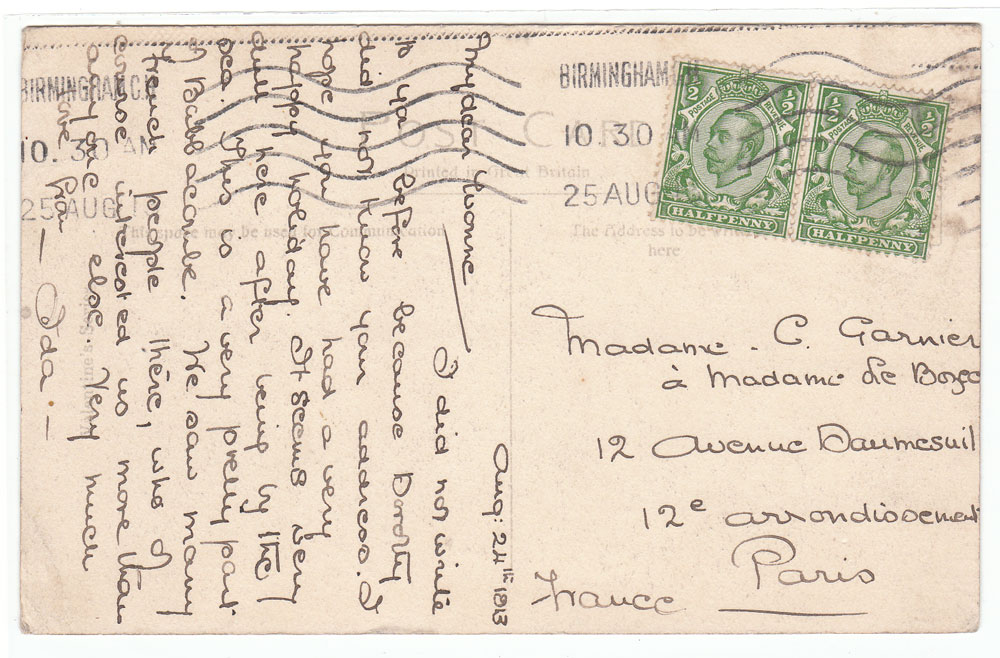 POST CARD
Printed in Great Britain
This space may be used for Communication
The Address to be
here
BIRMINGHAM
10. 30 AM
25 AUG 1
BIRMINGHAM
10 30 AM
25 AUG
½ ½
POSTAGE REVENUE
HALFPENNY
½ ½
POSTAGE REVENUE
HALFPENNY
Aug: 24th 1913
My dear Yvonne
I did not write
to you before because Dorothy
did not know your address. I
hope you have had a very
happy holiday. It seems very
dull here after being by the
sea. This is a very pretty part
of Babbacombe. We saw many
French people there, who of
course interested us more than
anyone else. Very much
love from
— Ida —
Madame. C. Garnier
à Madame Le
12 Avenue Daumesnil
12e arrondissement
Paris
France